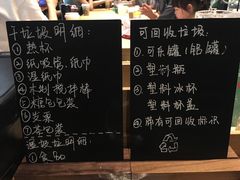 干垃圾明细:
① 热杯
② 纸吸管,纸巾
③ 湿纸巾
④ 木制搅拌棒
⑤ 糖包包装
⑥ 发票
⑦ 茶包装
湿垃圾明细:
① 食物
可回收垃圾:
① 可乐罐(铝罐)
② 塑料瓶
③ 塑料冰杯
塑料杯盖
④ 带有可回收标识